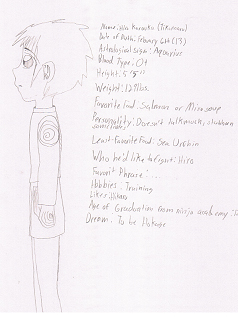 Name: Kurosuka (Tikuromaru)
Date of Birth: Febuary 6th (13)
Astrological sign: Aquarius
Blood Type: O+
Height: 5'5"
Weight: 121 lbs.
Favorite food: Salmon or Miso soup
Personality: Doesn't talk much, stubborn
sometimes
Least-Favorite Food: Sea Urchin
Who he'd like to fight: Hiro
Favorit Phrase: ...
Hobbies: Training
Likes: Hikari
Age of Graduation from ninja academy:
Dream: To be Hokage